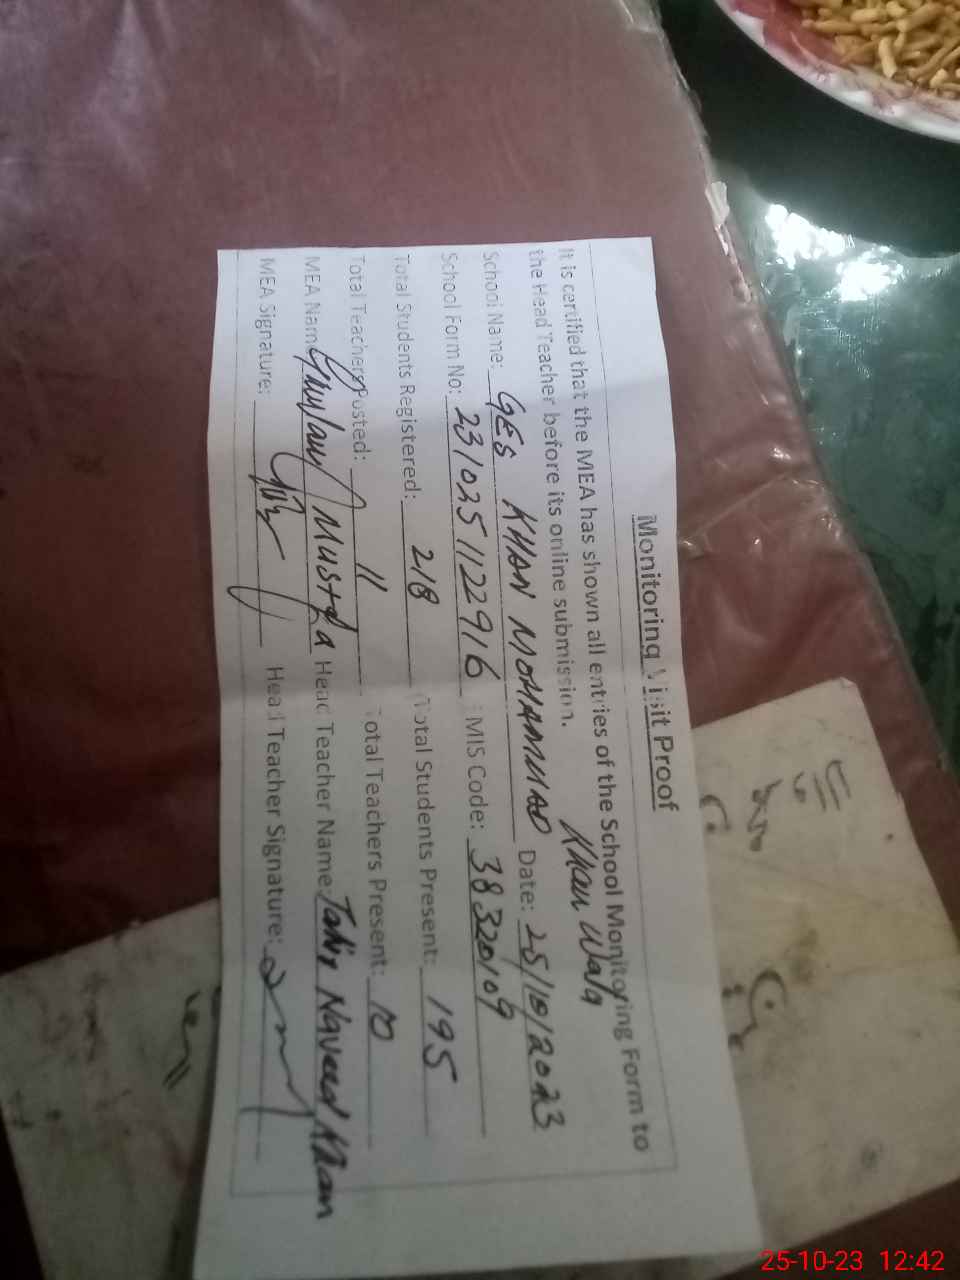 Monitoring Visit Proof
It is certified that the MEA has shown all entries of the School Monitoring Form to
the Head Teacher before its online submission.
Khan Wala
School Name: GES KHAN MOHAMMAD Date: 25/10/2023
School Form No: 2310251122916 EMIS Code: 38320109
Total Students Registered: 218 Total Students Present: 195
Total Teachers Posted: 11 Total Teachers Present: 10
MEA Name: Mustafa Head Teacher Name: Tahir Naveed Khan
MEA Signature: Head Teacher Signature:
25-10-23 12:42